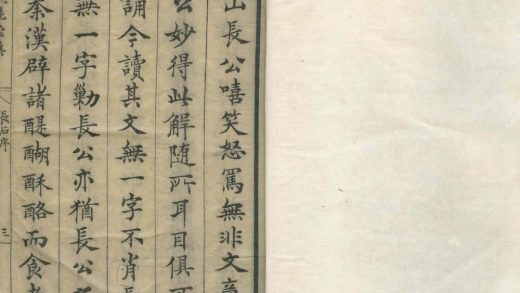 山長公嘻笑怒罵無非文章
公妙得此解隨所耳目俱可
誦今讀其文無一字不肖長
無一字勦長公亦猶長公
秦漢辟諸醍醐酥酪而食
長公序
三